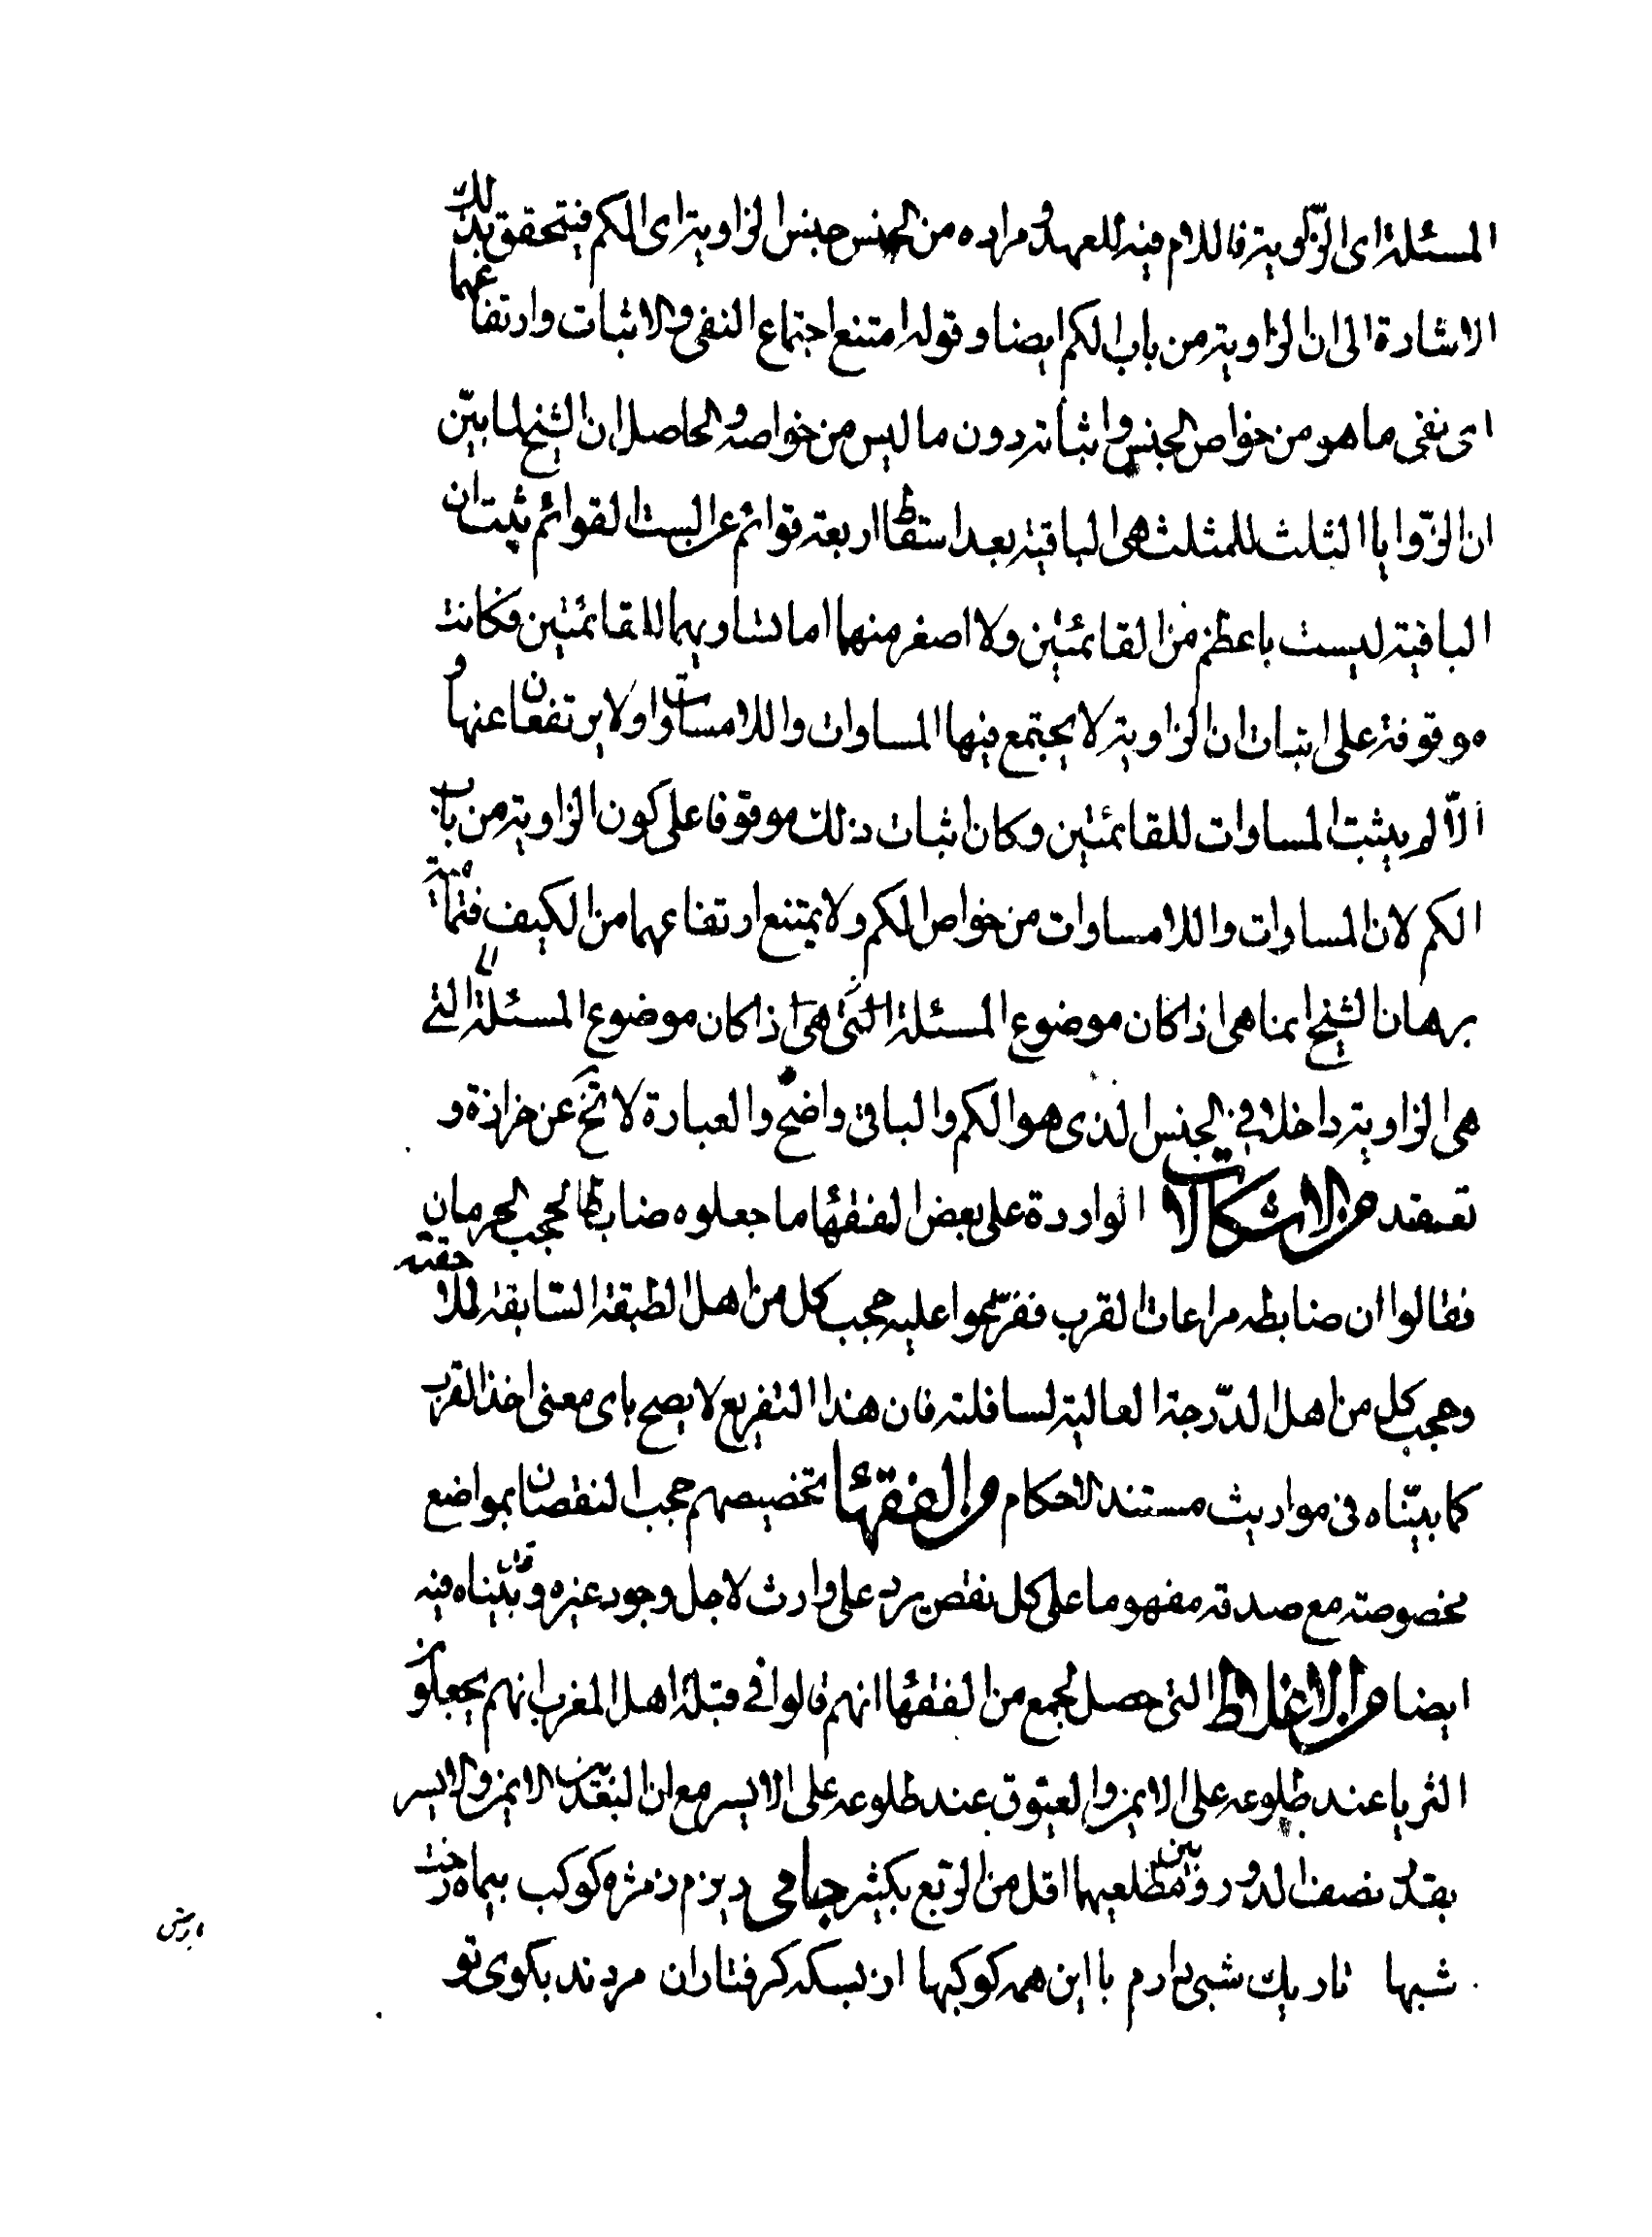 المسئلة اى الزّاوية فاللام فيه للعهد و مراده من الجنس جنس الزاوية اى الكم فيتحقق بذلك
الاشارة الى ان الزاوية من باب الكم ايضا وقوله امتنع اجتماع النفى والاثبات وارتفاعهما
اى نفى ما هو من خواص الجنس واثباته دون ما ليس من خواصه والحاصل ان الشيخ لما بيّن
ان الزّوايا الثلث للمثلث هى الباقية بعد اسقاط اربعة قوائم عن الست القوائم يثبت ان
الباقية ليست باعظم من القائمتين ولا اصغر منهما اما تساويهما للقائمتين فكانت
موقوفة على اثبات ان الزاوية لا يجتمع فيها المساوات واللامساوات ولا يرتفعان عنها و
الّا لم يثبت المساوات للقائمتين وكان اثبات ذلك موقوفا على كون الزاوية من باب
الكم لان المساوات واللامساوات من خواص الكم ولا يمتنع ارتفاعهما من الكيف فتمامية
برهان الشيخ انما هى اذا كان موضوع المسئلة التى هى اذا كان موضوع المسئلة التى
هى الزاوية داخلا فى الجنس الذى هو الكم والباقى واضح والعبارة لا تخ عن حزازة و
تعقيد من الاشكالات الواردة على بعض الفقهاء ما جعلوه ضابطا لحجب الحرمان
فقالوا ان ضابطه مراعات القرب ففرّعوا عليه حجب كل من اهل الطبقة السّابقة للاحقة
وحجب كل من اهل الدّرجة العالية لسافلته فان هذا التفريع لا يصح باى معنى اخذ القرب
كما بيّناه فى مواريث مستند الاحكام و الفقهاء تخصيصهم حجب النقصان بمواضع
مخصوصة مع صدقه مفهوما على كل نقص يرد على وارث لاجل وجود غيره وقد بيّناه فيه
ايضا من الاغلاط التى حصل لجمع من الفقهاء انهم قالوا فى قبلة اهل المغرب انهم يجعلون
الثريا عند طلوعه على الايمن والعيوق عند طلوعه على الايسر مع ان البعد بين الايمن والايسر
بقدر نصف الدور وما بين مطلعيهما اقل من الربع بكثير جامى ريزم ز مژه كوكب بيماه رخت
شبها تاريك شبى دارم با اين همه كوكبها از بسكه كرفتاران مردند بكوى تو